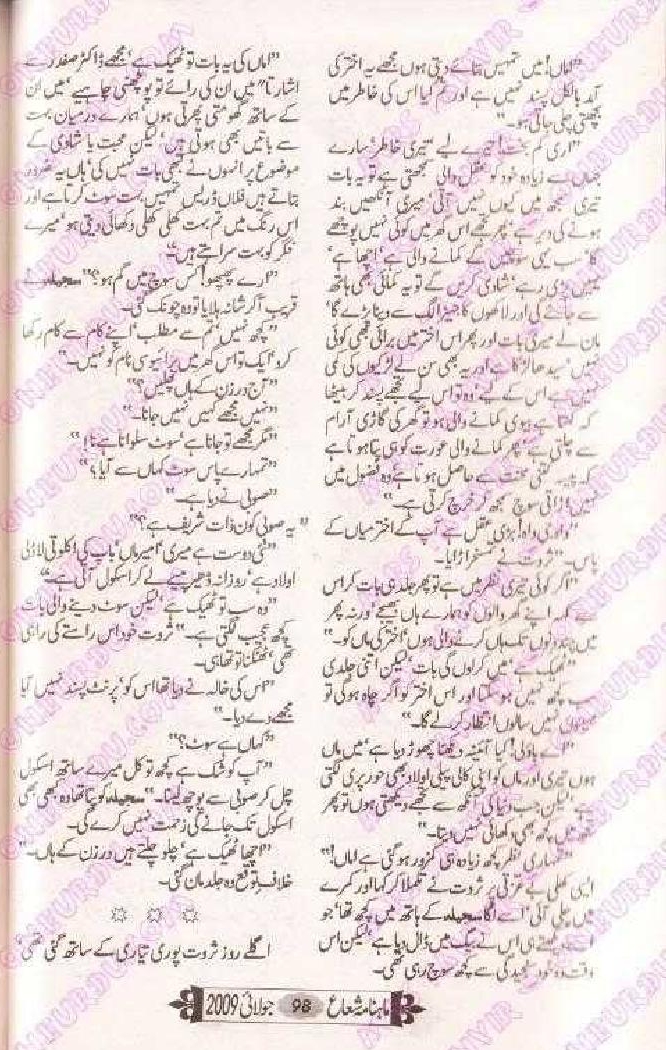 "اماں! میں تمہیں بتائے دیتی ہوں مجھے یہ اختر کی
آمد بالکل پسند نہیں ہے اور تم کیا اس کی خاطر میں
بچھتی چلی جاتی ہو۔"
"اری کم بخت! تیرے لیے، تیری خاطر، سارے
جہاں سے زیادہ خود کو عقل والی سمجھتی ہے تو یہ بات
تیری سمجھ میں کیوں نہیں آتی، میری آنکھیں بند
ہونے کی دیر ہے، پھر تجھے اس گھر میں کوئی نہیں پوچھے
گا، سب یہی سوچیں گے کمانے والی ہے، اچھا ہے،
یہیں پڑی رہے، شادی کریں گے تو یہ کمائی بھی ہاتھ
سے جائے گی اور لاکھوں کا جہیز الگ سے دینا پڑے گا،
مان لے میری بات اور پھر اس اختر میں برائی بھی کوئی
نہیں، سیدھا لڑکا ہے اور یہ بھی سن لے لڑکیوں کی کمی
نہیں ہے اس کے لیے، وہ تو اس لیے تجھے پسند کر بیٹھا
کہ کہتا ہے بیوی کمانے والی ہو تو گھر کی گاڑی آرام
سے چلتی ہے، پھر کمانے والی عورت کو ہی پتا ہوتا ہے
کہ پیسہ کتنی محنت سے حاصل ہوتا ہے وہ فضول میں
نہیں اڑاتی سوچ سمجھ کر خرچ کرتی ہے۔"
"واہ وی واہ! بڑی عقل ہے آپ کے اختر میاں کے
پاس۔" ثروت نے تمسخر اڑایا۔
"اگر کوئی تیری نظر میں ہے تو پھر جلدی بات کر اس
سے کہ اپنے گھر والوں کو ہمارے ہاں بھیجے، ورنہ پھر
میں چند دنوں تک ہاں کرنے والی ہوں، اختر کی ماں کو۔"
"ٹھیک ہے، میں کر لوں گی بات، لیکن اتنی جلدی
سب کچھ نہیں ہو سکتا اور اس اختر کو اگر چاہ ہوگی تو
مہینوں نہیں سالوں انتظار کر لے گا۔"
"اے باؤلی! کیا آئینہ دیکھنا چھوڑ دیا ہے، میں ماں
ہوں تیری اور ماں کو اپنی کالی پیلی اولاد بھی حور پری لگتی
ہے، لیکن جب دنیا کی آنکھ سے تجھے دیکھتی ہوں تو پھر
تجھ میں کچھ بھی دکھائی نہیں دیتا۔"
"تمہاری نظر کچھ زیادہ ہی کمزور ہوگئی ہے اماں!"
ایسی کھلی بے عزتی پر ثروت نے تلملا کر کہا اور کمرے
میں چلی آئی، اسے لگا سجیلہ کے ہاتھ میں کچھ تھا، جو
اسے دیکھتے ہی اس نے بیگ میں ڈال دیا ہے، لیکن اس
وقت وہ خود سنجیدگی سے کچھ سوچ رہی تھی۔
"اماں کی یہ بات تو ٹھیک ہے، مجھے ڈاکٹر صفدر سے
اشارتاً میں ان کی رائے تو پوچھنی چاہیے، میں ان
کے ساتھ گھومتی پھرتی ہوں، ہمارے درمیان بہت
سے باتیں بھی ہوتی ہیں، لیکن محبت یا شادی کے
موضوع پر انہوں نے کبھی بات نہیں کی، ہاں یہ ضرور
بتاتے ہیں فلاں ڈریس تمہیں بہت سوٹ کرتا ہے اور
اس رنگ میں تم بہت کھلی کھلی دکھائی دیتی ہو، میرے
فگر کو بہت سراہتے ہیں۔"
"ارے پھپھو! کس سوچ میں گم ہو؟" سجیلہ نے
قریب آکر شانہ ہلایا تو وہ چونک گئی۔
"کچھ نہیں، تم سے مطلب، اپنے کام سے کام رکھا
کرو، ایک تو اس گھر میں پرائیویسی نام کو نہیں۔"
"آج درزن کے ہاں چلیں؟"
"نہیں مجھے کہیں نہیں جانا۔"
"مگر مجھے تو جانا ہے، سوٹ سلوانا ہے نا!"
"تمہارے پاس سوٹ کہاں سے آیا؟"
"صوبی نے دیا ہے۔"
"یہ صوبی کون ذات شریف ہے؟"
"نئی دوست ہے میری، امیر ماں، باپ کی اکلوتی لاڈلی
اولاد ہے، روزانہ ڈھیر پیسے لے کر اسکول آتی ہے۔"
"وہ سب تو ٹھیک ہے، لیکن سوٹ دینے والی بات
کچھ عجیب لگتی ہے۔" ثروت خود اس راستے کی راہی
تھی، ٹھٹکنا تو تھا ہی۔
"اس کی خالہ نے دیا تھا اس کو، پرنٹ پسند نہیں آیا
مجھے دے دیا۔"
"کہاں ہے سوٹ؟"
"آپ کو شک ہے کچھ تو کل میرے ساتھ اسکول
چل کر صوبی سے پوچھ لینا۔" سجیلہ کو پتا تھا وہ کبھی بھی
اسکول تک جانے کی زحمت نہیں کرے گی۔
"اچھا ٹھیک ہے، چلو چلتے ہیں درزن کے ہاں۔"
خلاف توقع وہ جلد مان گئی۔
☼ ☼ ☼
اگلے روز ثروت پوری تیاری کے ساتھ گئی تھی،
ماہنامہ شعاع 98 جولائی 2009